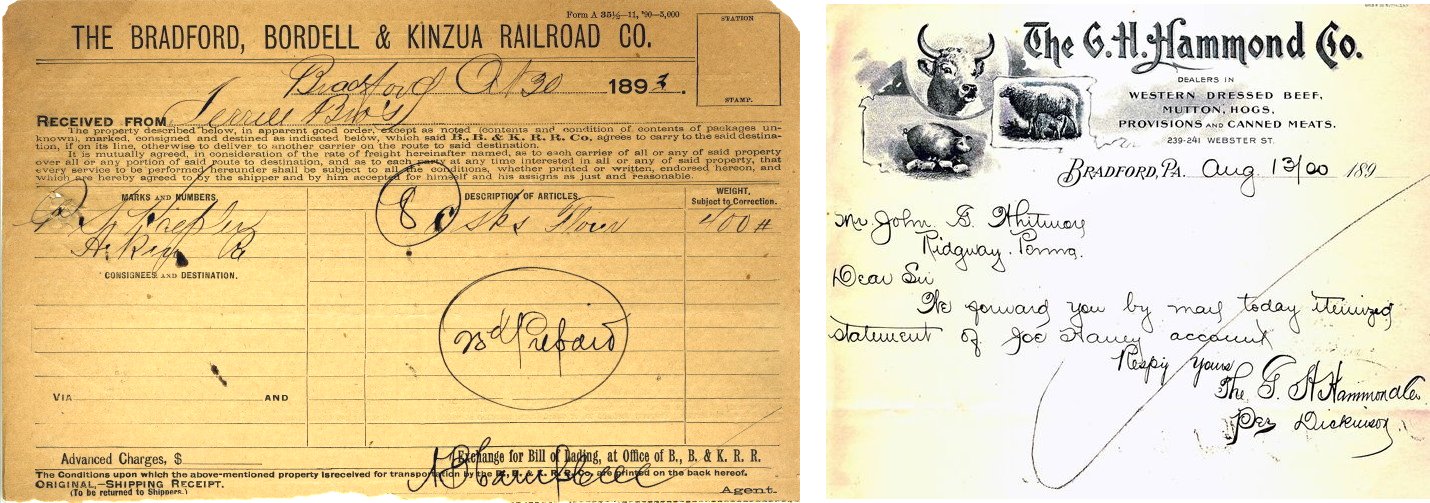 Form A 35½—11, '90—5,000
STATION
THE BRADFORD, BORDELL & KINZUA RAILROAD CO.
Bradford Oct 30 1893.
STAMP.
RECEIVED FROM Terrill Bro's
The property described below, in apparent good order, except as noted (contents and condition of contents of packages un-
known, marked, consigned and destined as indicated below, which said B. B. & K. R. R. Co. agrees to carry to the said destina-
tion, if on its line, otherwise to deliver to another carrier on the route to said destination.
It is mutually agreed, in consideration of the rate of freight hereinafter named, as to each carrier of all or any of said property
over all or any portion of said route to destination, and as to each party at any time interested in all or any of said property, that
every service to be performed hereunder shall be subject to all the conditions, whether printed or written, endorsed hereon, and
which are hereby agreed to by the shipper and by him accepted for himself and his assigns as just and reasonable.
MARKS AND NUMBERS, DESCRIPTION OF ARTICLES. WEIGHT,
Subject to Correction.
8 sks Flour 400 #
CONSIGNEES AND DESTINATION.
Prepaid
VIA AND
Advanced Charges, $ Exchange for Bill of Lading, at Office of B., B. & K. R. R.
The Conditions upon which the above-mentioned property is received for transportation by the B. B. & K. R. R. Co. are printed on the back hereof.
ORIGINAL,—SHIPPING RECEIPT.
(To be returned to Shippers.)
Agent.
The G. H. Hammond Co.
DEALERS IN
WESTERN DRESSED BEEF,
MUTTON, HOGS,
PROVISIONS AND CANNED MEATS.
239-241 WEBSTER ST.
BRADFORD, PA. Aug 13/00 189
Mr John G. Whitmore
Ridgway. Penna.
Dear Sir
We forward you by mail today itemized
statement of Joe Haney account
Respy Yours
The G. H Hammond Co
Per Dickinson